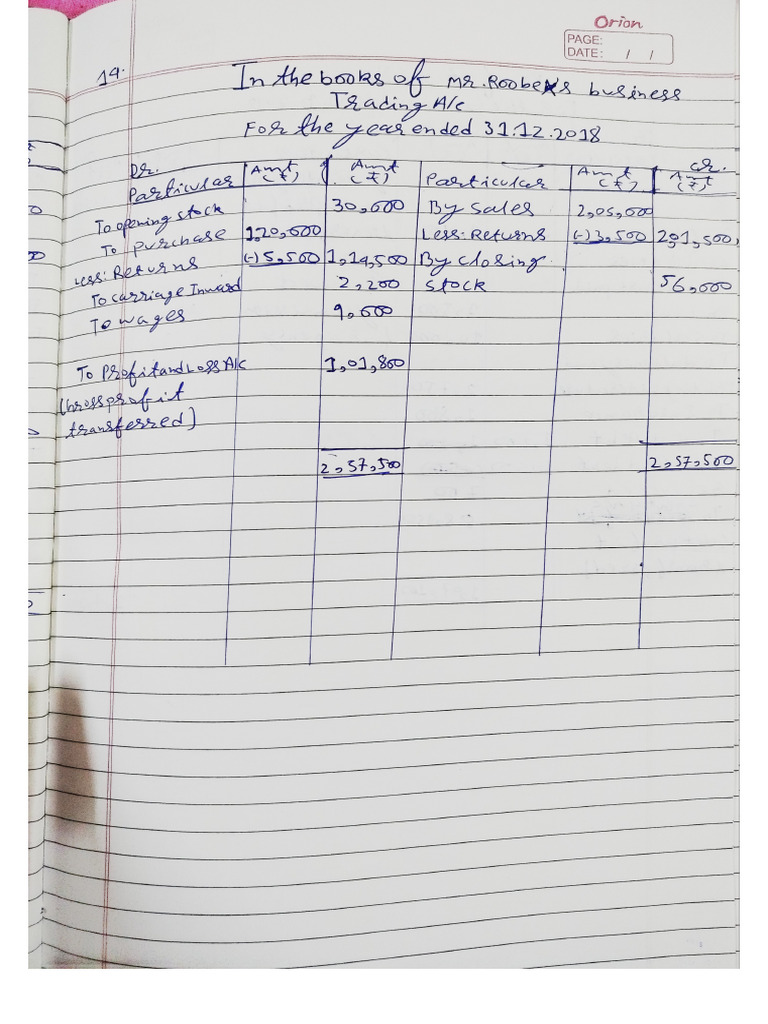 Orion
PAGE:
DATE: / /
19.
In the books of Mr. Roobex's business
Trading A/c
For the year ended 31.12.2018
Dr. Cr.
Particular Amt (₹) Amt (₹) Particular Amt (₹) Amt (₹)
To opening stock 30,000 By Sales 2,05,000
To purchase 1,20,000 Less: Returns (-) 3,500 2,01,500
Less: Returns (-) 5,500 1,14,500 By closing
To carriage Inward 2,200 stock 56,000
To wages 9,000
To Profit and Loss A/c 1,01,800
(Gross profit
transferred)
2,57,500 2,57,500